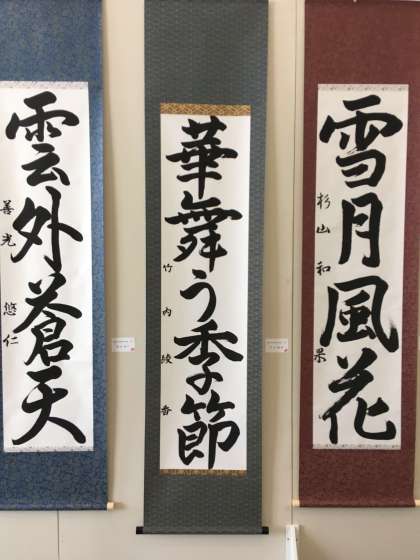 雪月風花
杉山和果
華舞う季節
竹内綾香
雲外蒼天
善光悠仁